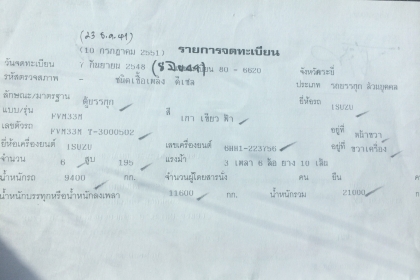 (23 ธ.ค. 49)
(10 กรกฎาคม 2551) รายการจดทะเบียน
วันจดทะเบียน 7 กันยายน 2548 80 - 6620 จังหวัดกระบี่
รหัสตรวจสภาพ - ชนิดเชื้อเพลิง ดีเซล ประเภท รถยบรรทุก ส่วนบุคคล
ลักษณะ/มาตรฐาน ตู้บรรทุก ยี่ห้อรถ ISUZU
แบบ/รุ่น FVM33M สี เทา เขียว ฟ้า
เลขตัวรถ FVM33M T-3000502 อยู่ที่ หน้าขวา
ยี่ห้อเครื่องยนต์ ISUZU เลขเครื่องยนต์ 6SA1-223756 อยู่ที่ ขวาเครื่อง
จำนวน 6 สูบ 195 แรงม้า 3 เพลา 6 ล้อ ยาง 10 เส้น
น้ำหนักรถ 9400 กก. จำนวนผู้โดยสารนั่ง คน ยืน ค
น้ำหนักบรรทุกหรือน้ำหนักลงเพลา 11600 กก. น้ำหนักรวม 21000 ก